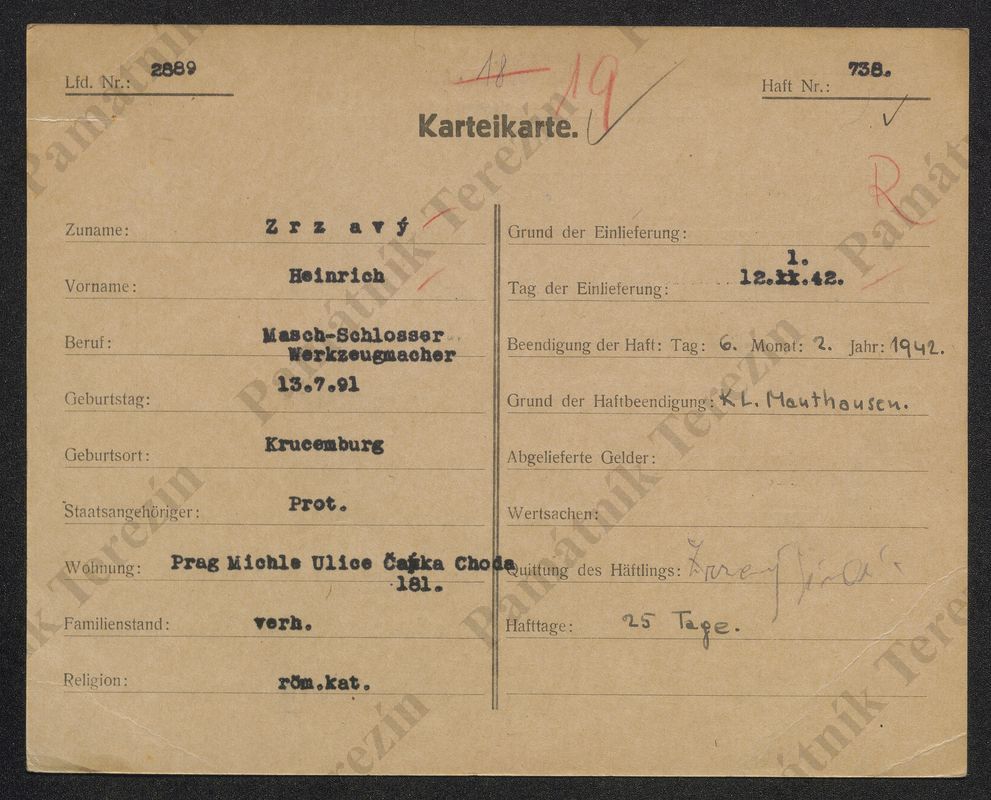 Lfd. Nr.: 2889
18 19
Haft Nr.: 738.
Karteikarte.
R
Zuname: Zrzavý
Vorname: Heinrich
Beruf: Masch-Schlosser
Werkzeugmacher
Geburtstag: 13.7.91
Geburtsort: Krucemburg
Staatsangehöriger: Prot.
Wohnung: Prag Michle Ulice Choda
181.
Familienstand: verh.
Religion: röm.kat.
Grund der Einlieferung:
1.
Tag der Einlieferung: 12.xx.42.
Beendigung der Haft: Tag: 6. Monat: 2. Jahr: 1942.
Grund der Haftbeendigung: K.L. Mauthausen.
Abgelieferte Gelder:
Wertsachen:
Quittung des Häftlings:
Hafttage: 25 Tage.
Památník Terezín
Památník Terezín
Památník Terezín
Památník Terezín